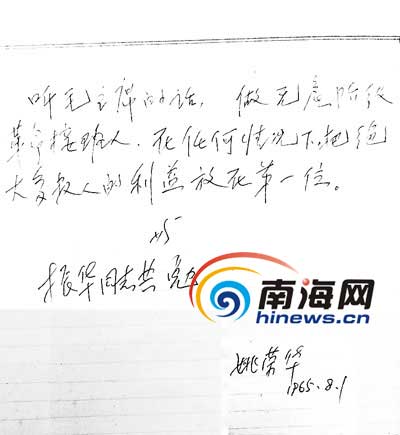 听毛主席的话，做无产阶级
革命接班人．在任何情况下，把绝
大多数人的利益放在第一位。
与
振华同志共勉
南海网
hinews.cn
姚荣华
1965.8.1